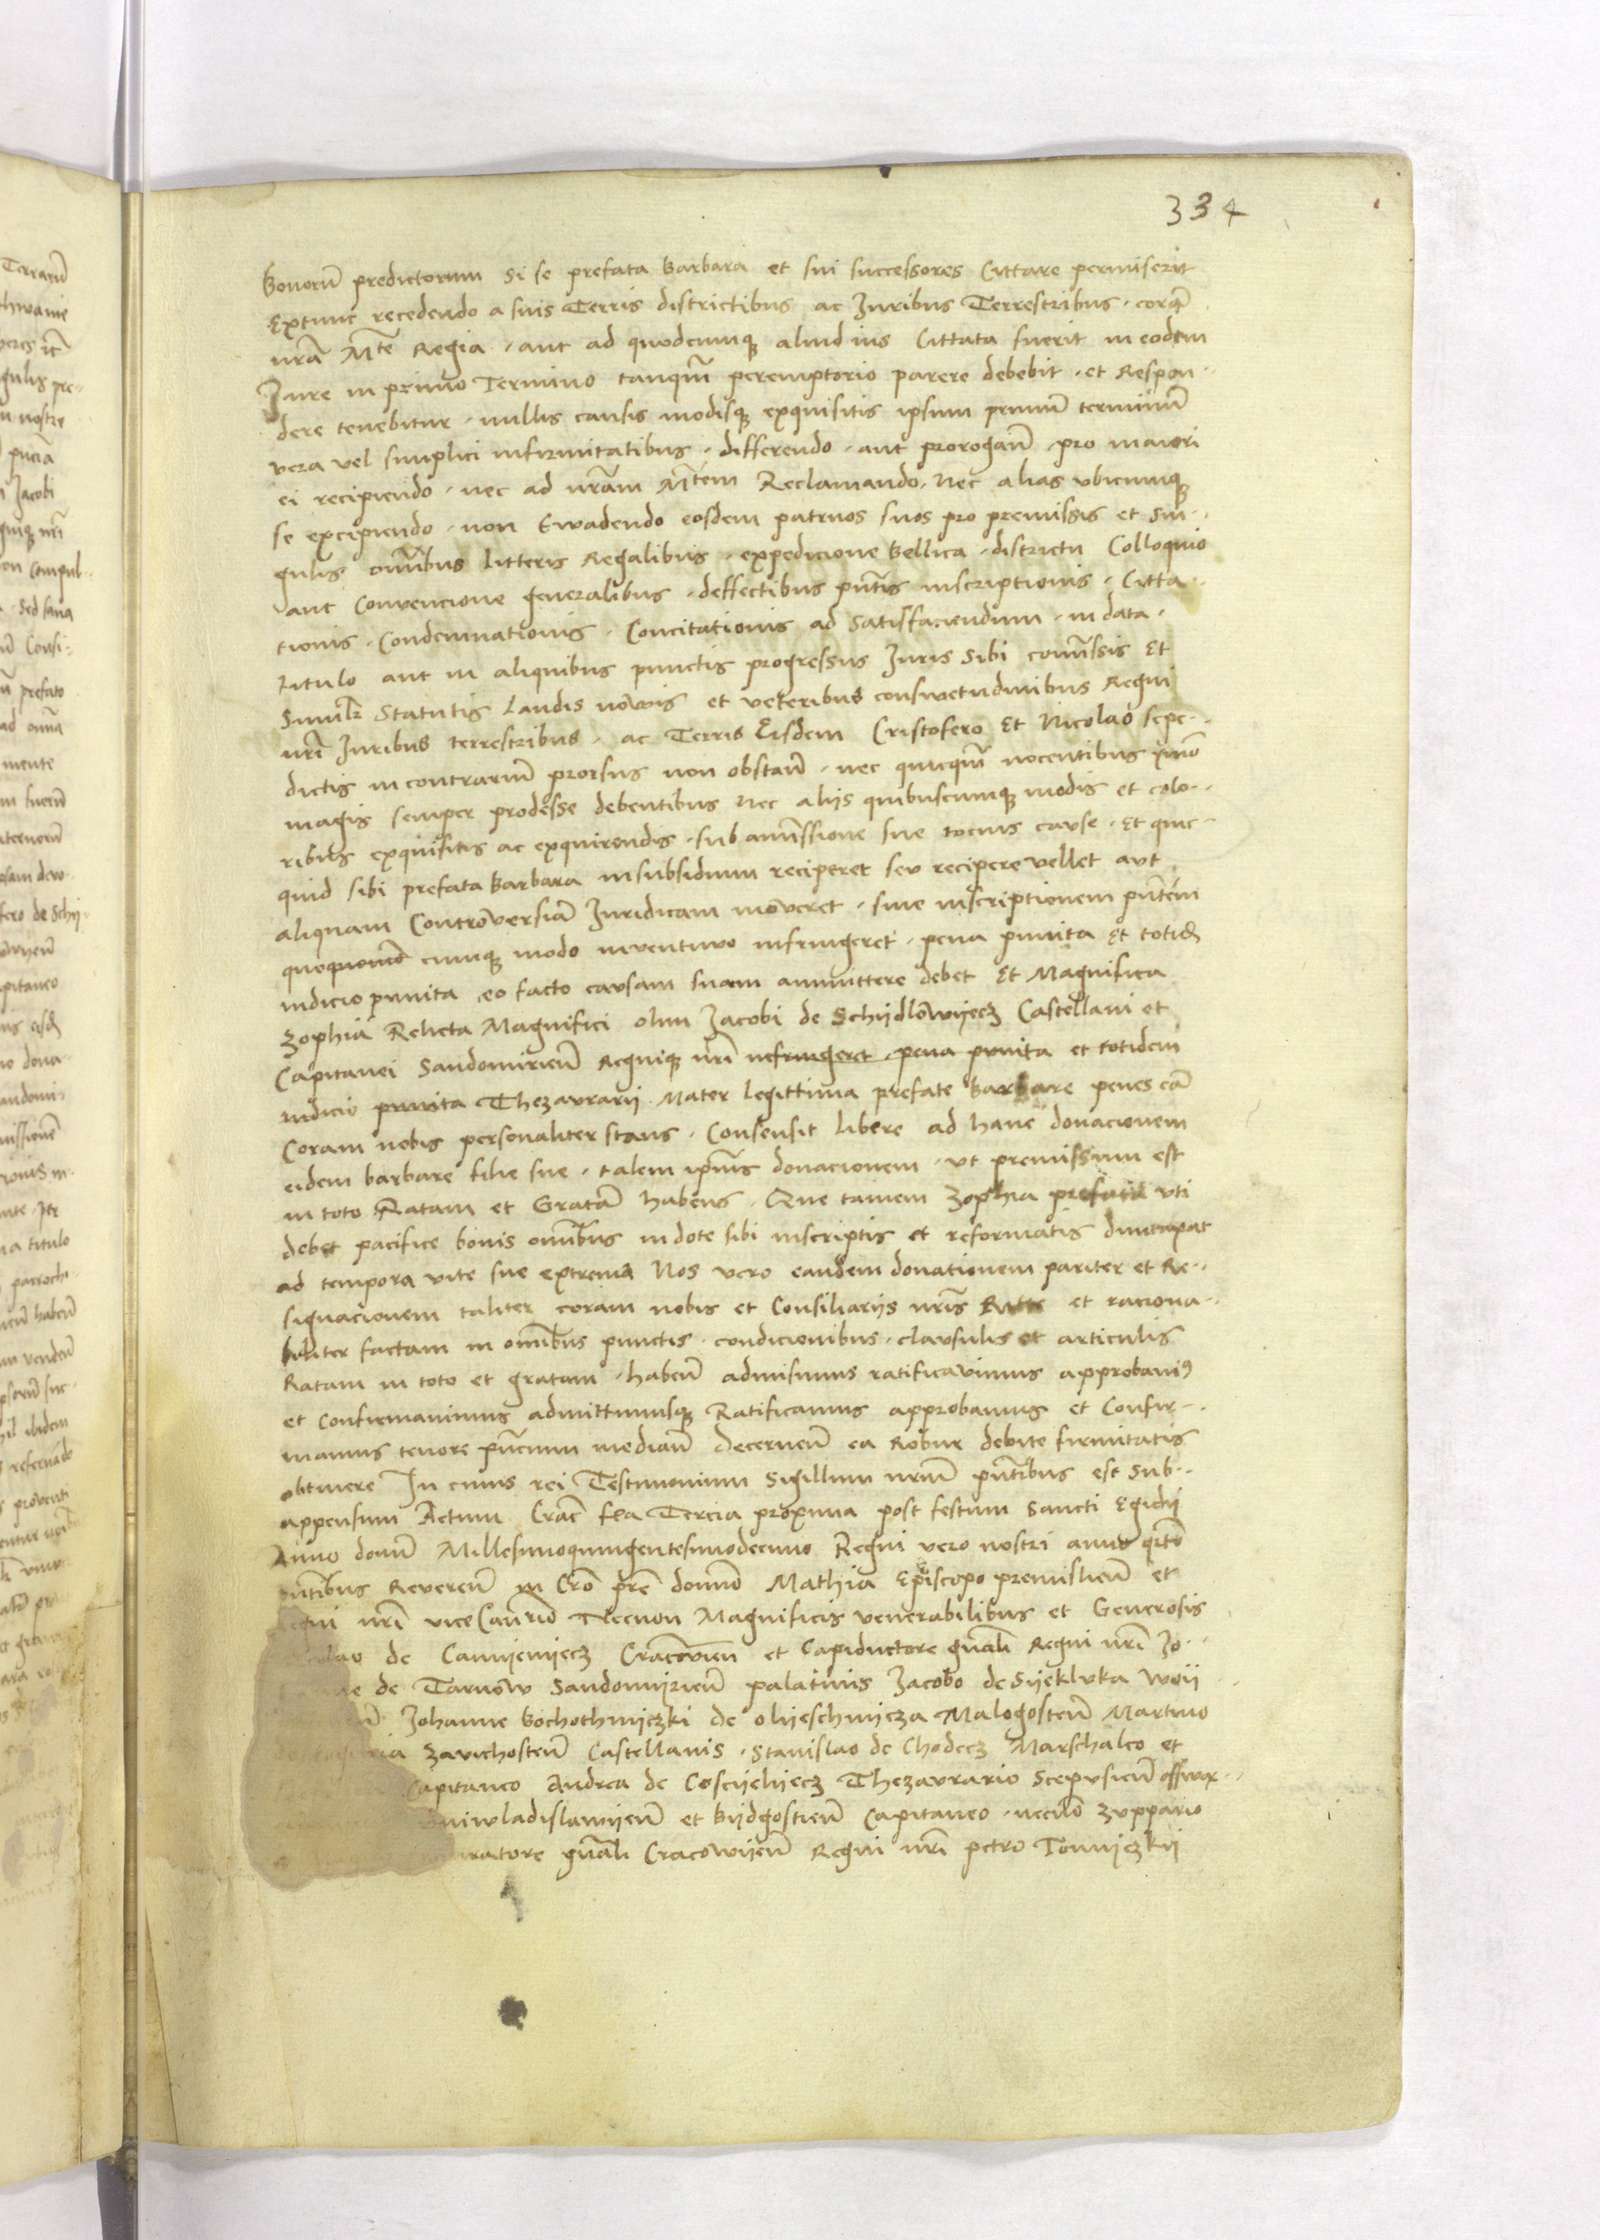 334
Bonorū predictorum Si se prefata Barbara et sui successores Cittare permiserit
Extunc recedendo a suis Terris districtibus ac Juribus Terrestribus · corā
nrā Mte Regia · aut ad quodcumqʒ aliud ius Cittata fuerit in eodem
Jure in primo Termino tanqm̄ peremptorio parere debebit · et Respon-
dere tenebitur · nullis causis modisqʒ exquisitis ipsum primū terminū
vera vel simplici infirmitatibus · differendo · aut prorogan̄ · pro maiori
ei recipiendo · nec ad nrām Mtem Reclamando · Nec alias vbicumqʒ
se excipiendo · non Ewadendo eosdem patruos suos pro premissis et Sin-
gulis om̄ibus Litteris Regalibus · expedicione bellica · districtu Colloquio
aut Convencione generalibus · deffectibus pn̄tis inscriptionis · Citta-
tionis · Condemnationis · Concitationis ad Satisfaciendum · in data ·
titulo aut in aliquibus punctis progressus Juris Sibi com̄issis Et
Simlʳ Statutis Laudis nowis et veteribus conswetudinibus Regni
nrī Juribus terrestribus · ac Terris Eisdem Cristofero Et Nicolao sepe-
dictis in contrariū prorsus non obstan̄ · nec quicqm̄ nocentibus ymō
magis semper prodesse debentibus Nec alijs quibuscumqʒ modis et colo-
ribus exquisitis ac exquirendis · sub amissione sue tocius cause · Et quic-
quid sibi prefata Barbara in subsidium reciperet seu recipere vellet aut
aliquam Controversiā Juridicam moveret · sive inscriptionem pn̄tem
quoquomō cumqʒ modo inventuvo infringeret · pena punita Et totidē
iudicio punita eo facto causam suam ammittere debet Et Magnifica
Zophia Relicta Magnifici olim Jacobi de Schijdlowijecz Castellani et
Capitanei Sandomirien̄ Regniqʒ nrī nefringeret · pena punita et totidem
iudicio punita Thezaurarii Mater legittima prefate Barbare penes eā
Coram nobis personaliter stans · Consensit libere ad hanc donacionem
eidem barbare filie sue · talem ipmīs donacionem · ut premissum est
in toto Ratam et Gratā habens · Que tamen Zophia prefata uti
debet pacifice bonis om̄ibus in dote sibi inscriptis et reformatis dumtaxat
ad tempora vite sue extrema Nos vero eandem donationem pariter et Re-
signacionem taliter coram nobis et Consiliarijs nrīs Ritte et raciona-
biliter factam in om̄ibus punctis · condicionibus · clausulis et articulis
Ratam in toto et gratam · haben̄ admisimus ratificavimus approbavi9
et Confirmavimus admittimusqʒ Ratificamus approbamus et Confir-
mamus tenore pn̄cium median̄ Decernen̄ ea Robur debite firmitatis
obtinere In cuius rei Testimonium Sigillum nrūm pn̄tibus est Sub-
appensum Actum Crac̄ fea Tercia proxima post festum Sancti Egidij
Anno domī Millesimoquingentesimodecimo Regni vero nostri anno qrto
pn̄tibus Reveren̄ in Cro pre domino Mathia Episcopo premislien̄ et
Regni nrī vice Cancrio Necnon Magnificis venerabilibus et Generosis
de Camijenijecz Cracovien̄ et Capiductore gn̄ali Regni nrī Jo-
de Tarnow Sandomijrien̄ palatinis Jacobo de Sijekluka Woij
Johanne Bochothnijczki de olijeschnicza Malogosten̄ Martino
Zavichosten̄ Castellanis · Stanislao de Chodecz Marschalco et
Capitaneo Andrea de Coscijelijecz Thezaurario Scepusien̄
Juniwladislawijen̄ et Bijdgostien̄ Capitaneo · necnō Zuppario
gn̄ali Cracowijen̄ Regni nrī petro Tomijczkij